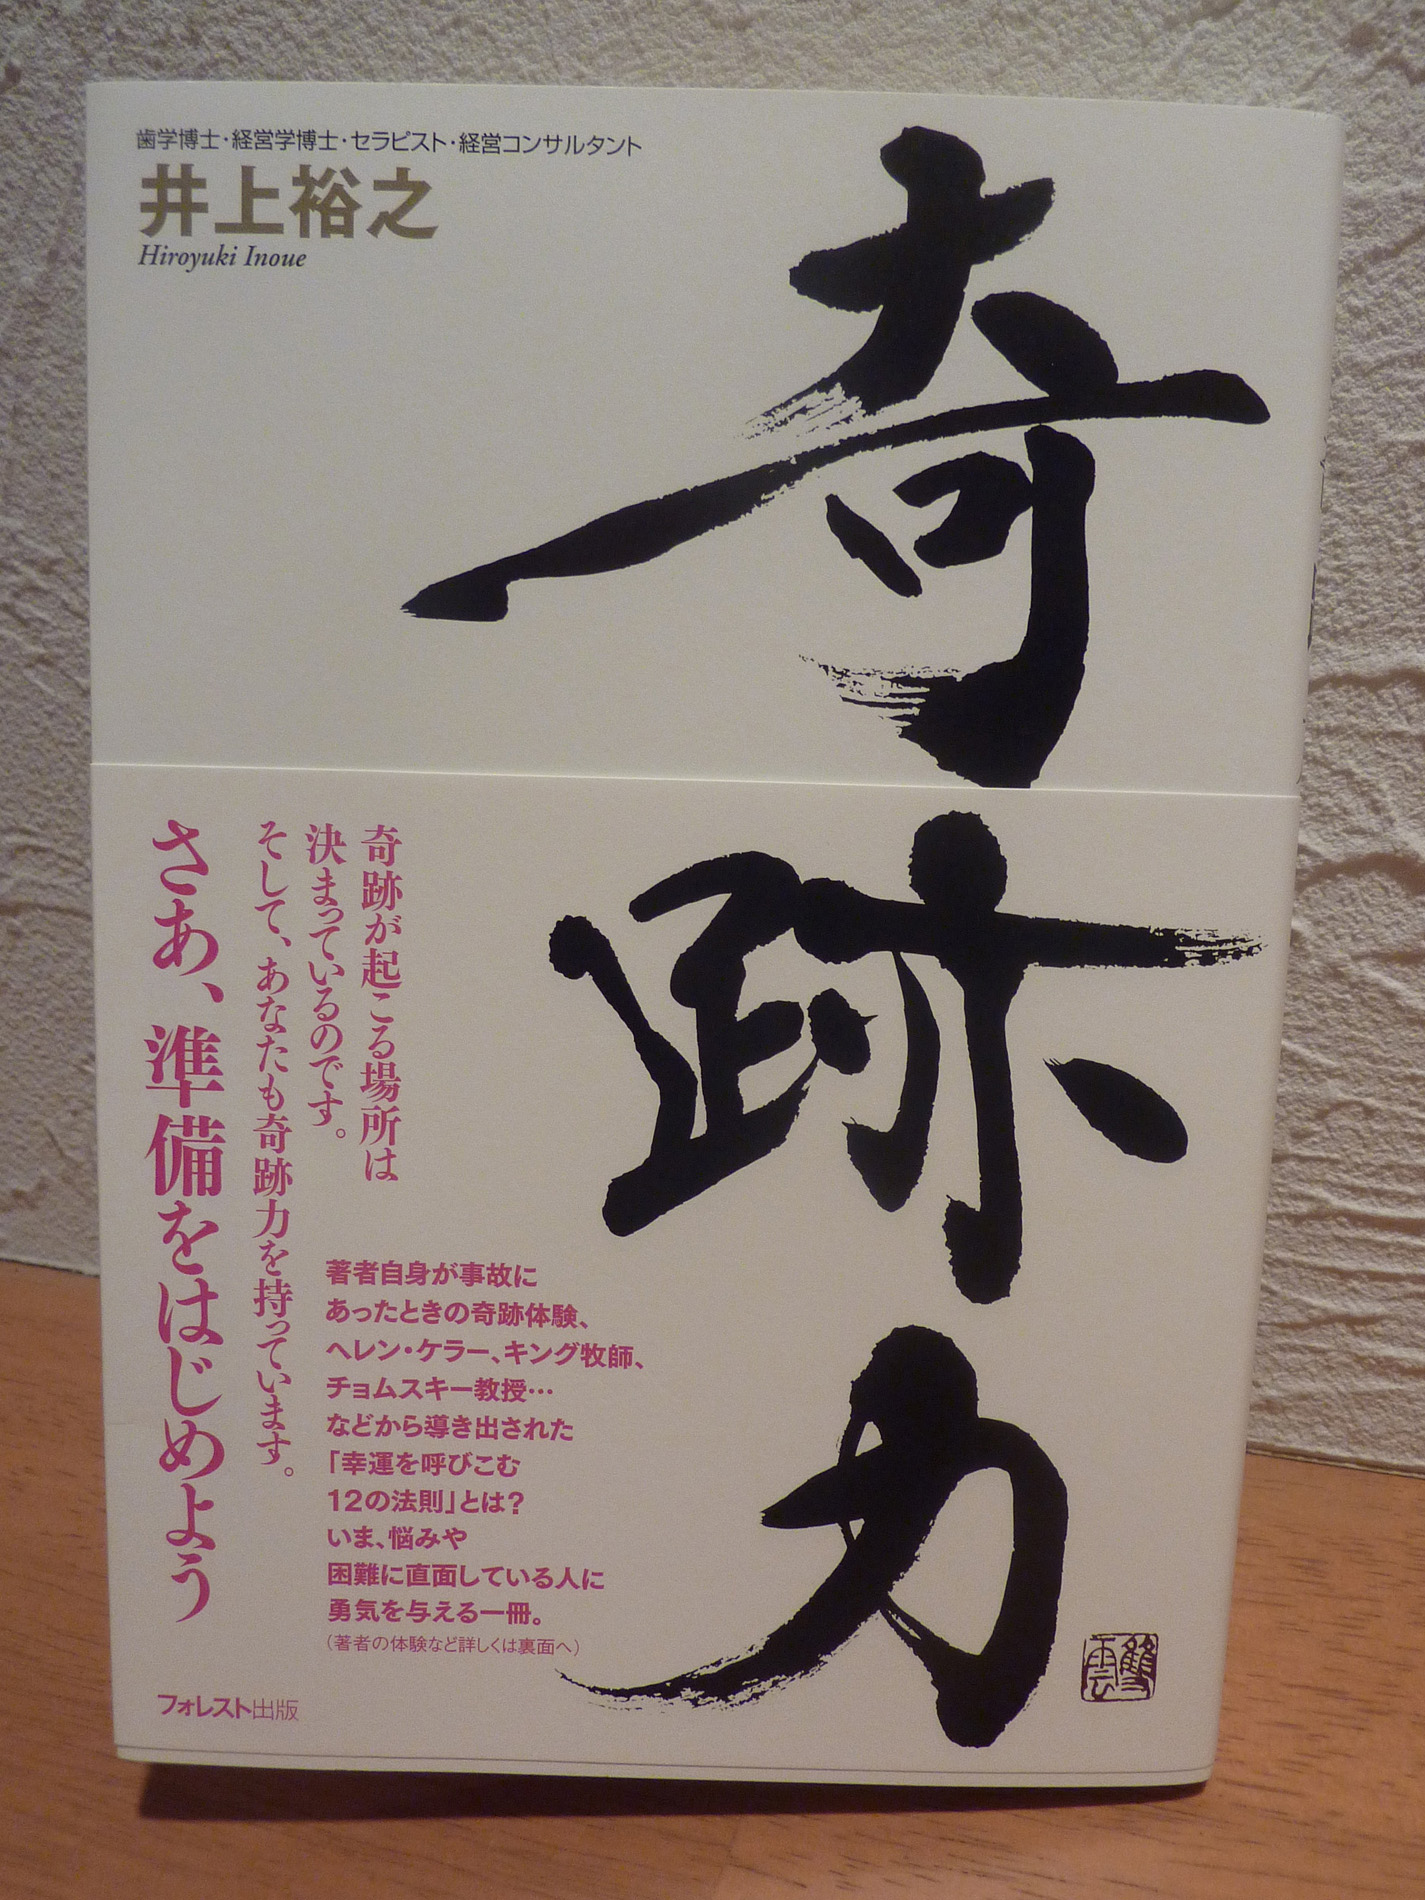 歯学博士・経営学博士・セラピスト・経営コンサルタント
井上裕之
Hiroyuki Inoue
奇跡力
奇跡が起こる場所は
決まっているのです。
そして、あなたも奇跡力を持っています。
さあ、準備をはじめよう
著者自身が事故に
あったときの奇跡体験、
ヘレン・ケラー、キング牧師、
チョムスキー教授…
などから導き出された
「幸運を呼びこむ
12の法則」とは?
いま、悩みや
困難に直面している人に
勇気を与える一冊。
(著者の体験など詳しくは裏面へ)
フォレスト出版
雙雲